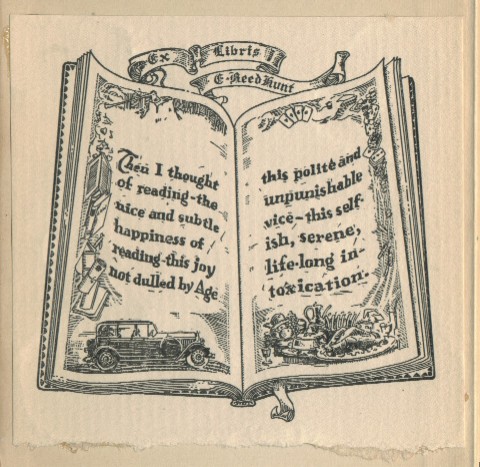 Ex Libris
E·Reed Hunt
Then I thought
of reading-the
nice and subtle
happiness of
reading-this joy
not dulled by Age
this polite and
unpunishable
vice-this self-
ish, serene,
life-long in-
toxication.